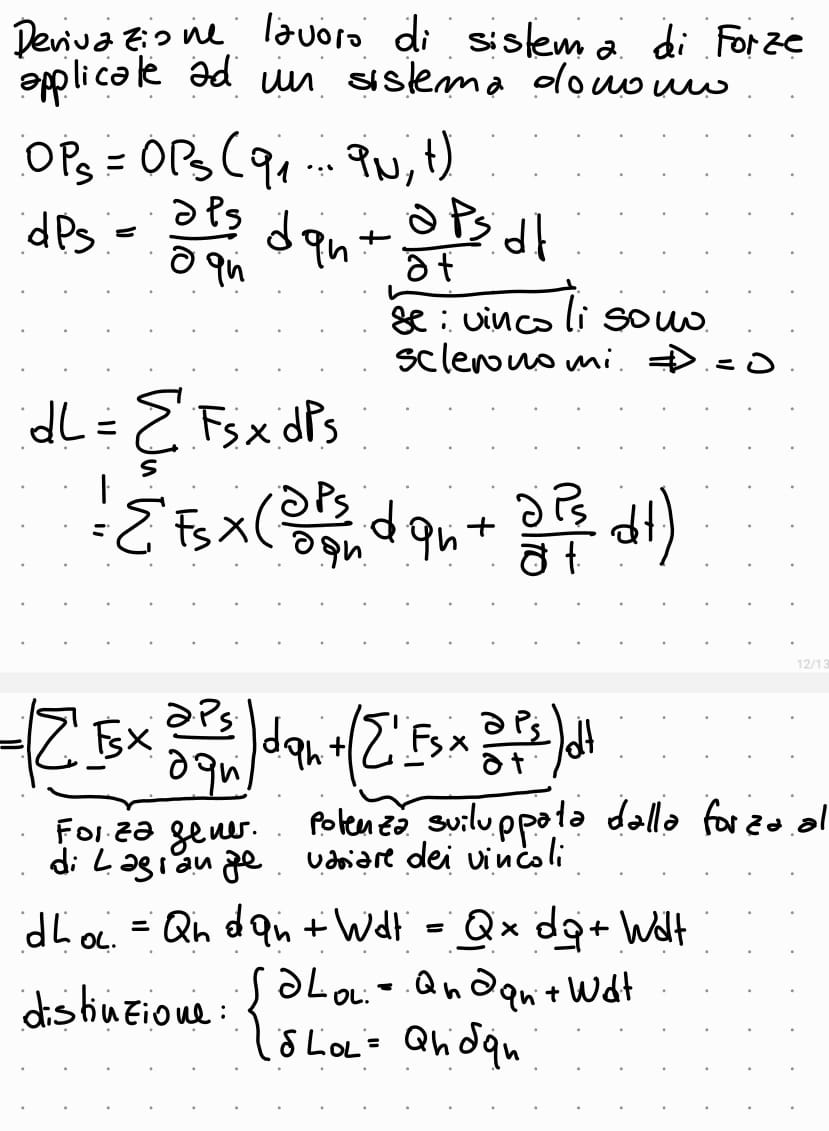 Derivazione lavoro di sistema di Forze
applicate ad un sistema olonomo
OPs = OPs(q1 ... qN, t)
dPs = ∂Ps/∂qh dqh + ∂Ps/∂t dt
se i vincoli sono
scleronomi ⇒ = 0
dL = Σs Fs × dPs
= Σ' Fs × (∂Ps/∂qh dqh + ∂Ps/∂t dt)
12/13
= (Σ Fs × ∂Ps/∂qh) dqh + (Σ' Fs × ∂Ps/∂t) dt
Forza gener. Potenza sviluppata dalla forza al
di Lagrange variare dei vincoli
dL OL. = Qh dqh + Wdt = Q × dq + Wdt
distinzione: { ∂L OL. = Qh ∂qh + Wdt
δL OL = Qh δqh